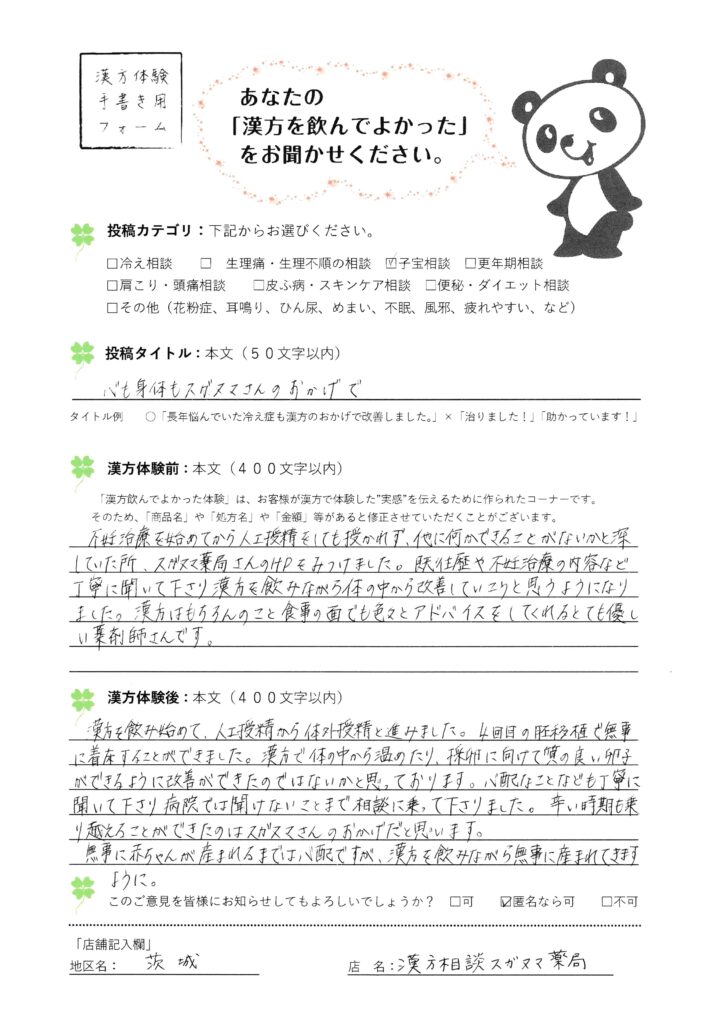 漢方体験
手書き用
フォーム
あなたの
「漢方を飲んでよかった」
をお聞かせください。
投稿カテゴリ：下記からお選びください。
□冷え相談　□　生理痛・生理不順の相談　☑子宝相談　□更年期相談
□肩こり・頭痛相談　□皮ふ病・スキンケア相談　□便秘・ダイエット相談
□その他（花粉症、耳鳴り、ひん尿、めまい、不眠、風邪、疲れやすい、など）
投稿タイトル：本文（５０文字以内）
心も身体もスガヌマさんのおかげで
タイトル例　○「長年悩んでいた冷え症も漢方のおかげで改善しました。」×「治りました！」「助かっています！」
漢方体験前：本文（４００文字以内）
「漢方飲んでよかった体験」は、お客様が漢方で体験した”実感”を伝えるために作られたコーナーです。
そのため、「商品名」や「処方名」や「金額」等があると修正させていただくことがございます。
不妊治療を始めてから人工授精をしても授かれず、他に何かできることがないかと探
していた所、スガヌマ薬局さんのHPをみつけました。既往歴や不妊治療の内容など
丁寧に聞いて下さり漢方を飲みながら体の中から改善していこうと思うようになり
ました。漢方はもちろんのこと食事の面でも色々とアドバイスをしてくれるとても優し
い薬剤師さんです。
漢方体験後：本文（４００文字以内）
漢方を飲み始めて、人工授精から体外授精と進みました。4回目の胚移植で無事
に着床することができました。漢方で体の中から温めたり、採卵に向けて質の良い卵子
ができるように改善ができたのではないかと思っております。心配なことなども丁寧に
聞いて下さり病院では聞けないことまで相談に乗って下さりました。辛い時期も乗
り越えることができたのはスガヌマさんのおかげだと思います。
無事に赤ちゃんが産まれるまでは心配ですが、漢方を飲みながら無事に産まれてきます
ように。
このご意見を皆様にお知らせしてもよろしいでしょうか？　□可　☑匿名なら可　□不可
「店舗記入欄」
地区名：　茨城　店　名：漢方相談スガヌマ薬局